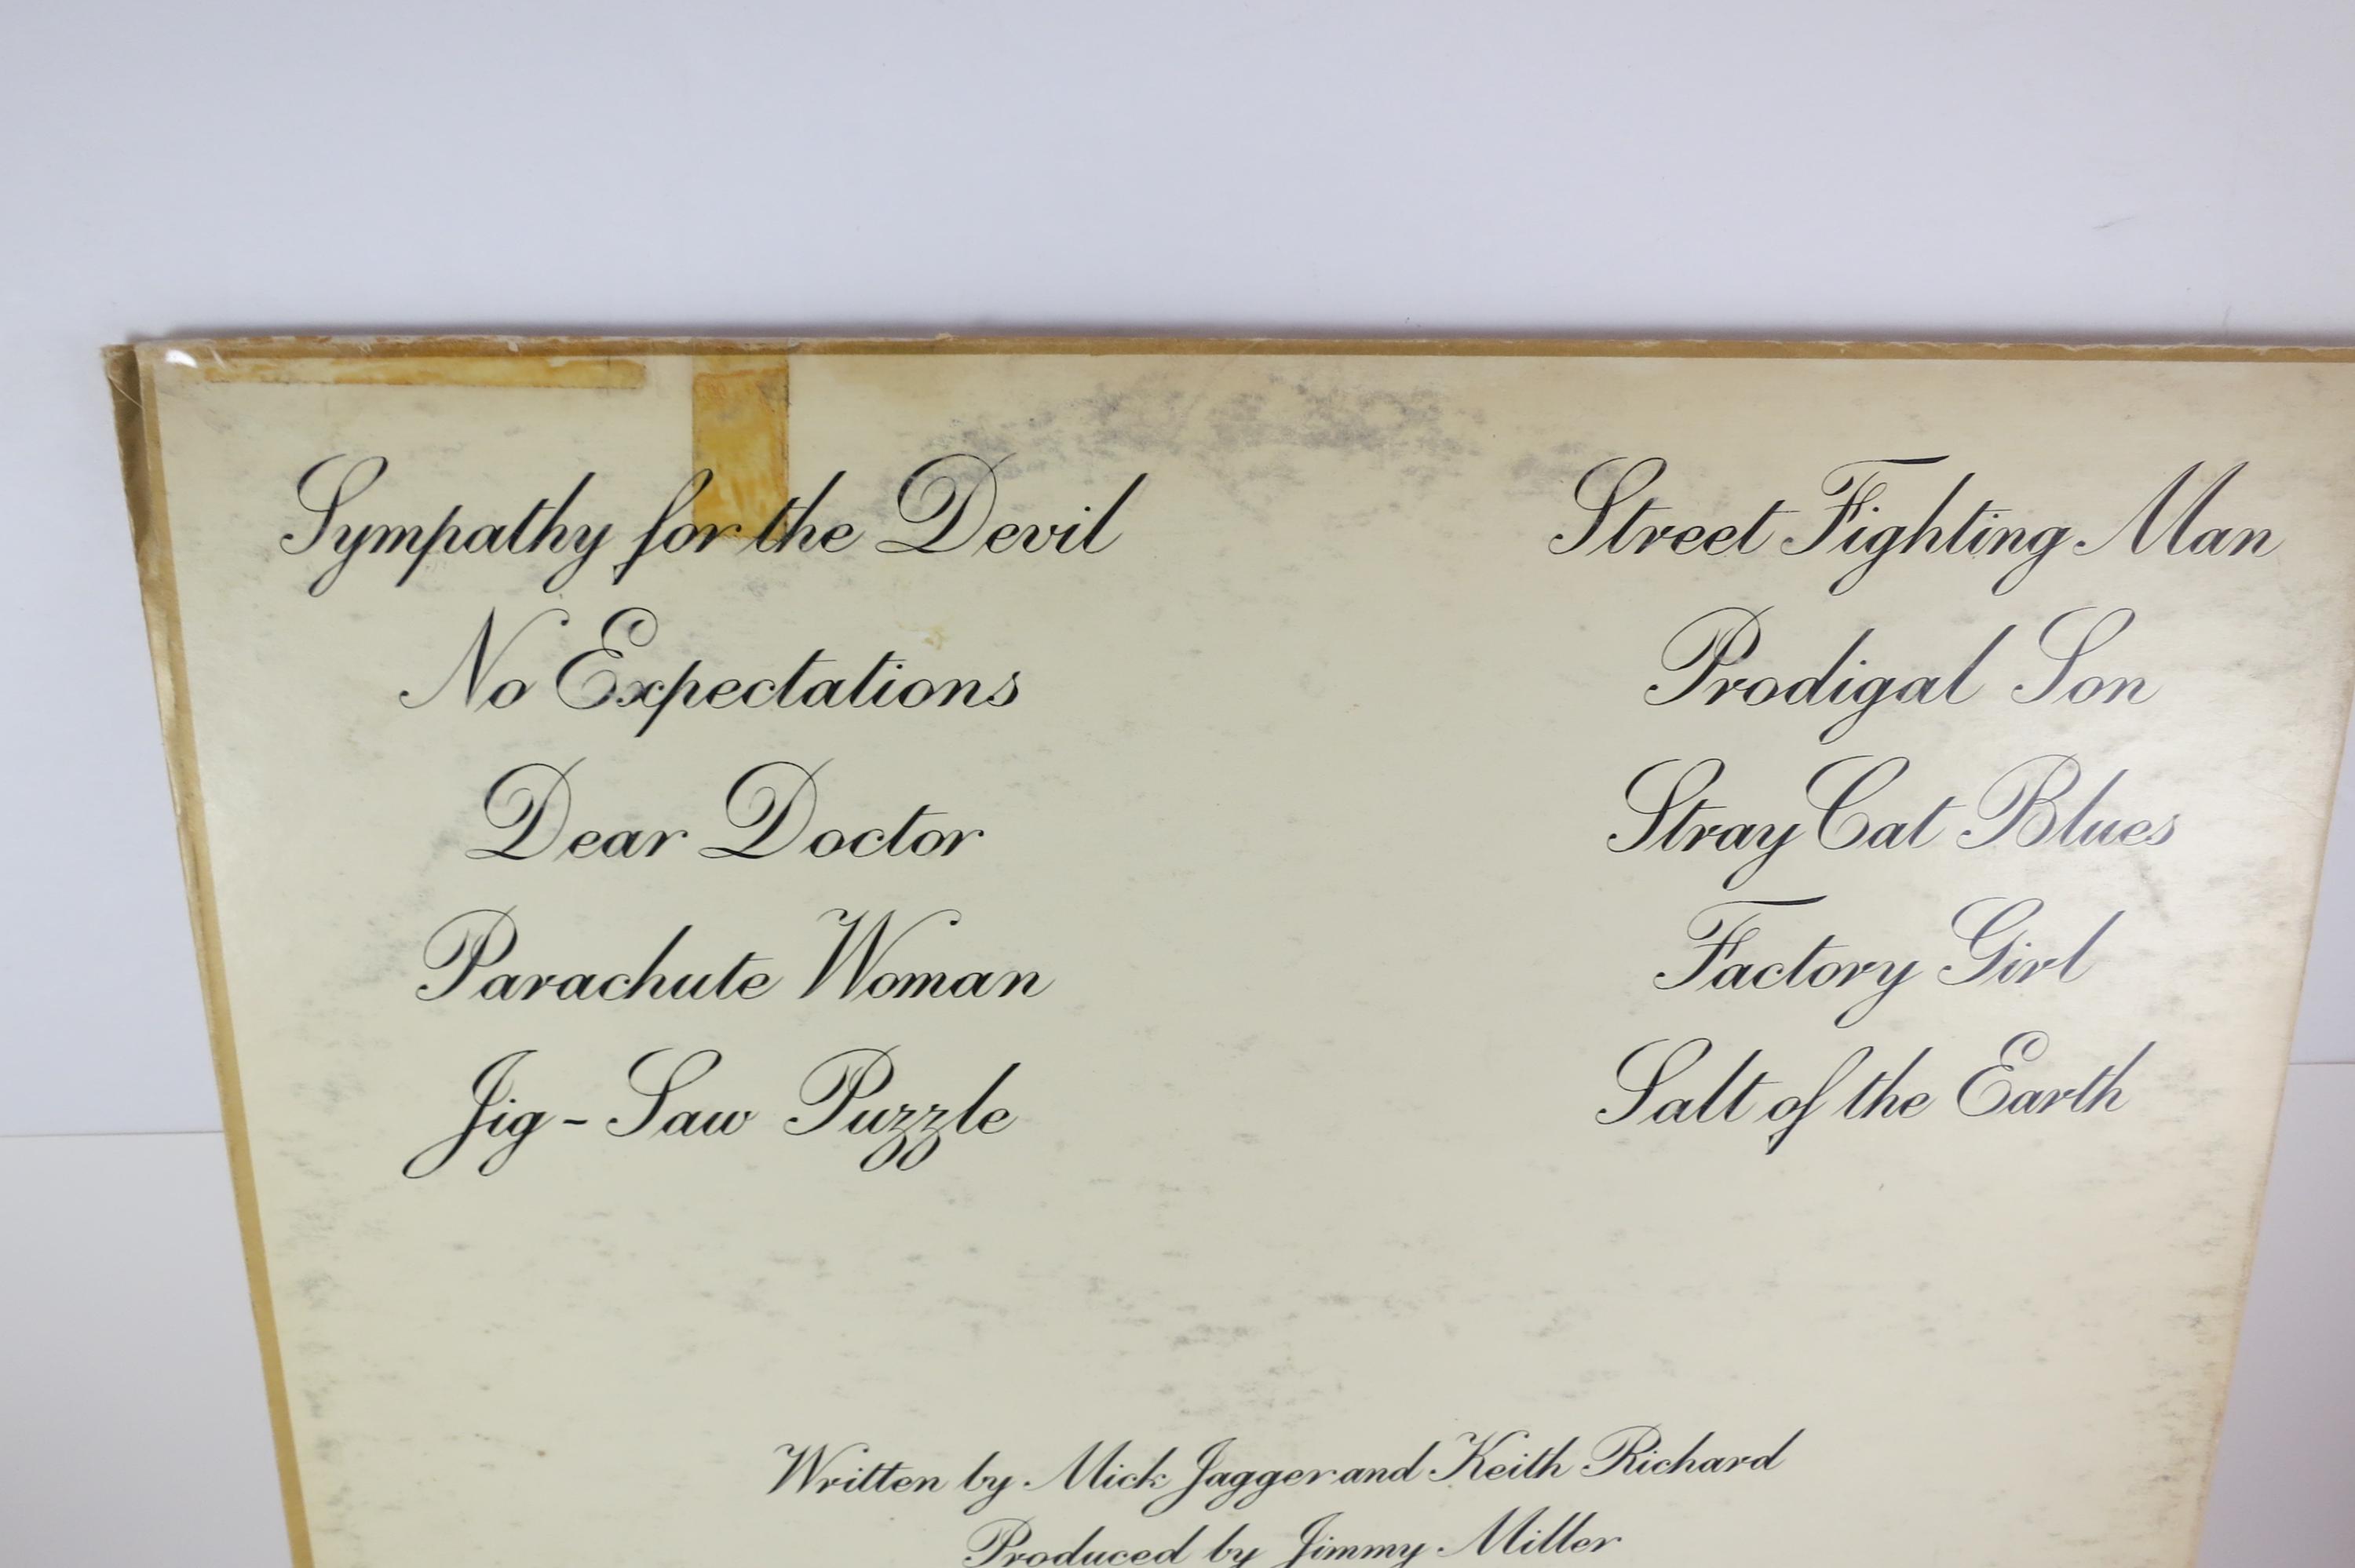 Sympathy for the Devil
No Expectations
Dear Doctor
Parachute Woman
Jig-Saw Puzzle
Street Fighting Man
Prodigal Son
Stray Cat Blues
Factory Girl
Salt of the Earth
Written by Mick Jagger and Keith Richard
Produced by Jimmy Miller